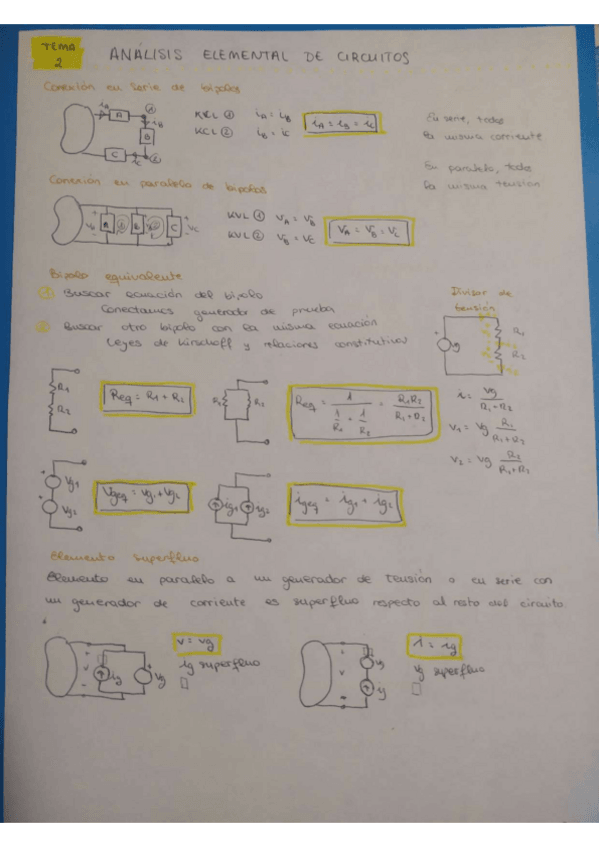 TEMA 2
ANÁLISIS ELEMENTAL DE CIRCUITOS
Conexión en serie de bipolos
iA A ① iB B C iC ②
KCL ① iA = iB
KCL ② iB = iC
iA = iB = iC
En serie, todos
la misma corriente
En paralelo, todos
la misma tensión
Conexión en paralelo de bipolos
+ VA - A ① B ② C + VC -
KVL ① VA = VB
KVL ② VB = VC
VA = VB = VC
Bipolo equivalente
① Buscar ecuación del bipolo
Conectamos generador de prueba
② Buscar otro bipolo con la misma ecuación
Leyes de Kirschoff y relaciones constitutivas
Divisor de
tensión
Vg R1 R2
i = Vg / R1+R2
V1 = Vg R1 / R1+R2
V2 = Vg R2 / R1+R2
R1
R2
Req = R1 + R2
Req = 1 / 1/R1 + 1/R2 = R1R2 / R1+R2
Vg1
Vg2
Vgeq = Vg1 + Vg2
ig1 ig2
igeq = ig1 + ig2
Elemento superfluo
Elemento en paralelo a un generador de tensión o en serie con
un generador de corriente es superfluo respecto al resto del circuito.
+ v - ig Vg
v = vg
ig superfluo
+ v - Vg ig
i = ig
Vg superfluo